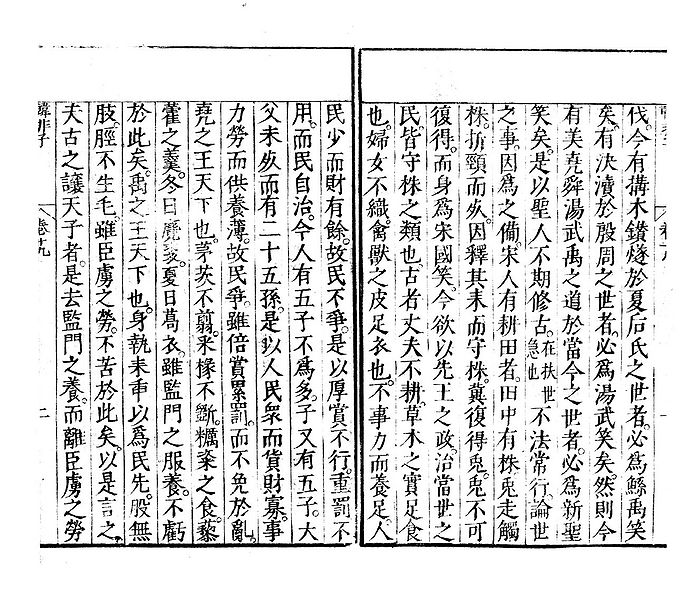 伐。今有搆木鑚燧於夏后氏之世者。必爲鯀禹笑
矣。有決瀆於殷周之世者。必爲湯武笑矣。然則今
有美堯舜湯武禹之道於當今之世者。必爲新聖
笑矣。是以聖人不期修古。在扶世急也不法常行。論世
之事。因爲之備。宋人有耕田者。田中有株。兎走觸
株。折頸而死。因釋其耒而守株。冀復得兎。兎不可
復得。而身爲宋國笑。今欲以先王之政。治當世之
民。皆守株之類也。古者丈夫不耕。草木之實足食
也。婦女不織。禽獸之皮足衣也。不事力而養足。人
民少而財有餘。故民不爭。是以厚賞不行。重罰不
用。而民自治。今人有五子不爲多。子又有五子。大
父未死而有二十五孫。是以人民衆而貨財寡。事
力勞而供養薄。故民爭。雖倍賞累罰。而不免於亂。
堯之王天下也。茅茨不翦。采椽不斲。糲粢之食。藜
藿之羹。冬日麑裘。夏日葛衣。雖監門之服養。不虧
於此矣。禹之王天下也。身執耒臿以爲民先。股無
肢。脛不生毛。雖臣虜之勞。不苦於此矣。以是言之。
夫古之讓天子者。是去監門之養。而離臣虜之勞
韓非子 卷十九 二